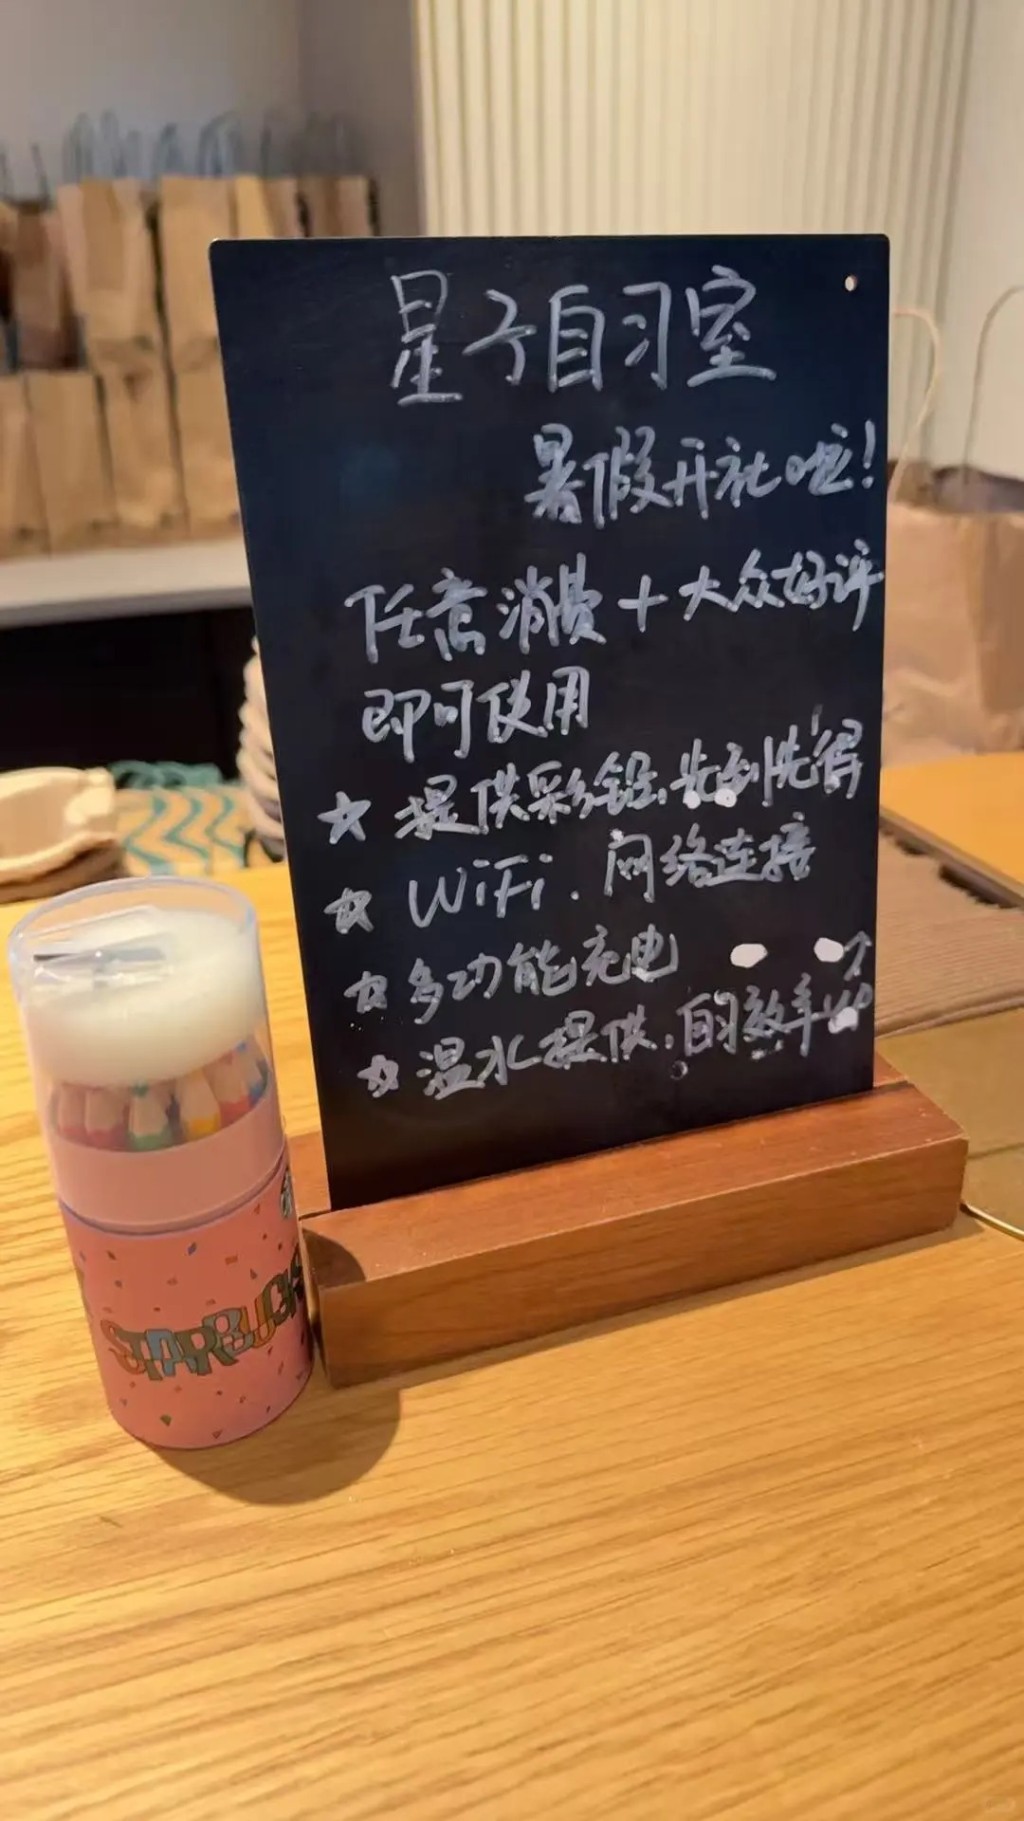 星子自习室
暑假开社啦!
任意消费+大众好评
即可使用
☆ 提供彩铅,先到先得
☆ WiFi.网络连接
☆ 多功能充电
☆ 温水提供,自习效率up↑
STARBUCKS